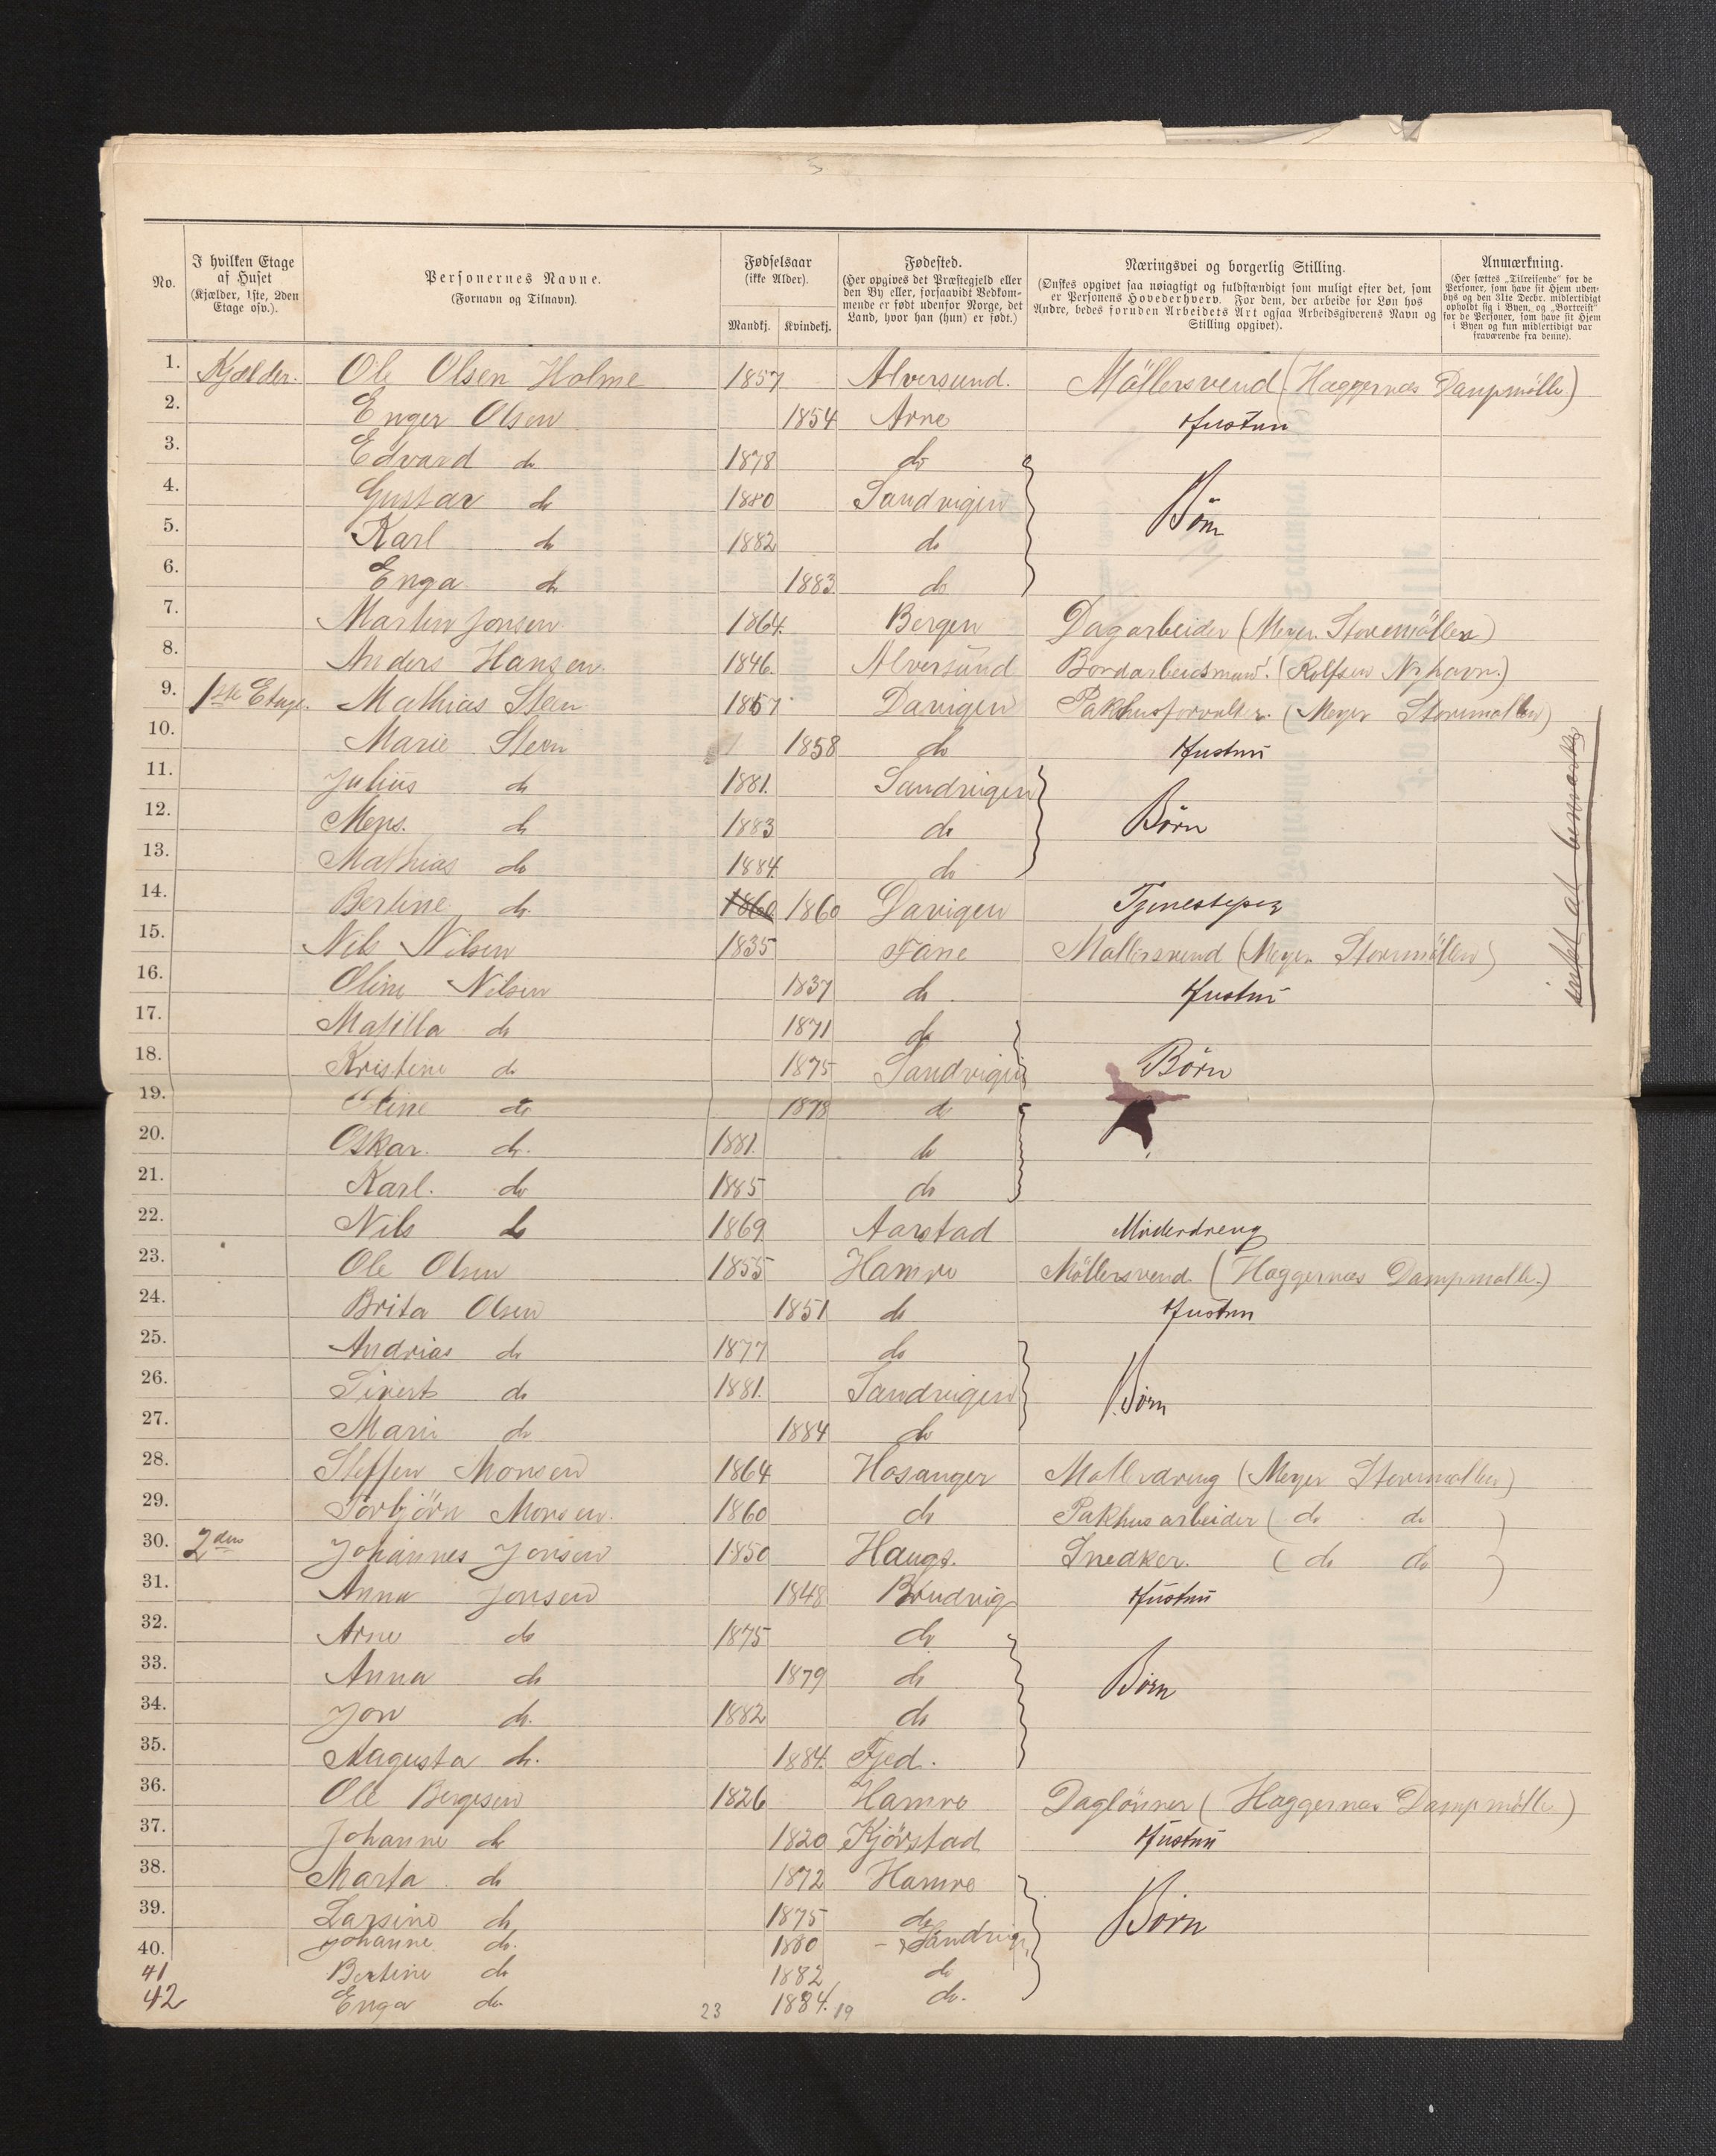 No.
I hvilken Etage af Huset (Kjælder, 1ste, 2den Etage osv.).
Personernes Navne. (Fornavn og Tilnavn).
Fødselsaar (ikke Alder).
Mandkj. Kvindekj.
Fødested. (Her opgives det Præstegjeld eller den By eller, forsaavidt Vedkommende er født udenfor Norge, det Land, hvor han (hun) er født.)
Næringsvei og borgerlig Stilling. (Ønskes opgivet saa nøiagtigt og fuldstændigt som muligt efter det, som er Personens Hovederhverv. For dem, der arbeide for Løn hos Andre, bedes foruden Arbeidets Art ogsaa Arbeidsgiverens Navn og Stilling opgivet).
Anmærkning. (Her sættes „Tilreisende" for de Personer, som have sit Hjem udenbys og den 31te Decbr. midlertidigt opholdt sig i Byen, og „Bortreist" for de Personer, som have sit Hjem i Byen og kun midlertidigt var fraværende fra denne).
1. Kjælder. Ole Olsen Holme 1857 Alversund. Möllersvend (Haggernæs Dampmölle)
2. Enger Olsen 1854 Arne Hustru
3. Edvard do 1878 do
4. Gustav do 1880 Sandvigen Börn
5. Karl do 1882 do
6. Enga do 1883 do
7. Martin Jonsen 1864. Bergen Dagarbeider (Meyer. Storemöllen)
8. Anders Hansen. 1846. Alversund Bordarbeidsmand. (Rolfsen Nyhavn.)
9. 1ste Etage. Mathias Steen 1857 Davigen Pakhusforvalter. (Meyer Storemøllen)
10. Marie Steen 1858 do Hustru
11. Julius do 1881. Sandvigen
12. Mons. do 1883 do Börn
13. Mathias do 1884. do
14. Bertine do 1860 1860 Davigen Tjenestepige
15. Nils Nilsen 1835 Fane Mollersvend (Meyer. Storemöllen)
16. Oline Nilsen 1837 do Hustru
17. Matilla do 1871 do
18. Kristine do 1875 Sandvigen Börn
19. Eline do 1878 do
20. Oskar. do. 1881. do
21. Karl. do 1885 do
22. Nils do 1869 Aarstad
23. Ole Olsen 1855 Hamre Möllersvend. (Haggernæs Dampmølle.)
24. Brita Olsen 1851 do Hustru
25. Andrias do 1877 do
26. Sivert do 1881. Sandvigen Börn
27. Marie do 1884 do
28. Steffen Monsen 1864 Hosanger Molledreng (Meyer Storemøllen)
29. Torbjörn Monsen. 1860 do Pakhusarbeider (do do)
30. 2den Johannes Jonsen 1850 Haugs. Snedker. (do do)
31. Anna Jonsen 1848 Brudvig Hustru
32. Arne do 1875 do
33. Anna do 1879 do Börn
34. Jon do. 1882 do
35. Augusta do. 1884. Fjed.
36. Ole Bergesen 1826 Hamre Daglönner (Haggernæs Dampmölle)
37. Johanne do 1820 Kjörstad Hustru
38. Marta do 1872 Hamre
39. Larsine do 1875 do Börn
40. Johanne do. 1880 - Sandvig
41 Bertine do 1882 do
42 Enga do. 1884. do.
23 19